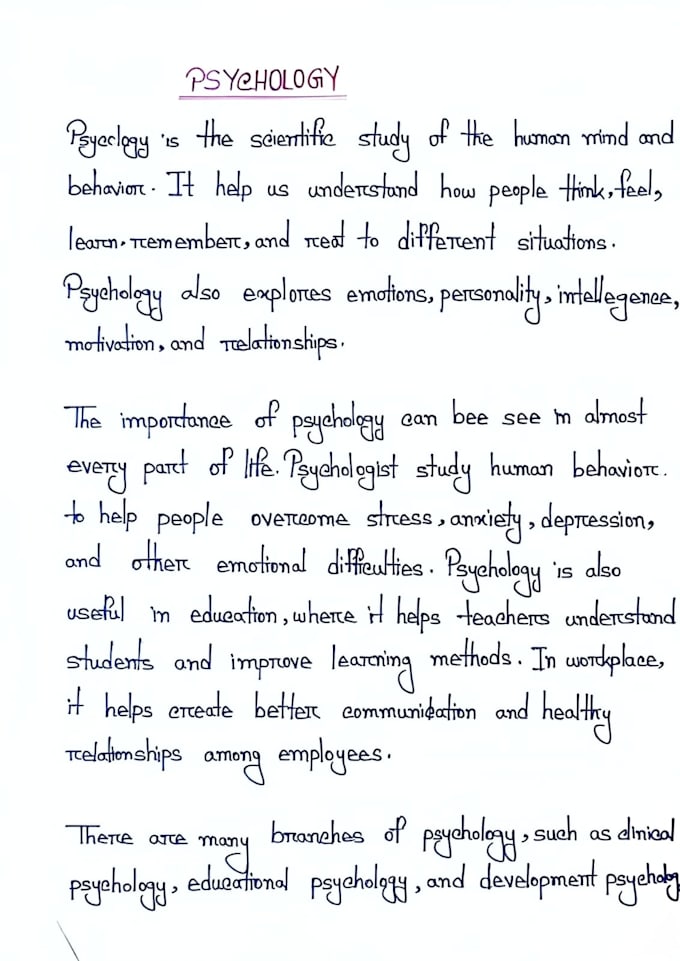 PSYCHOLOGY
Psycology is the scientific study of the human mind and
behavior. It help us understand how people think, feel,
learn, remember, and reat to different situations.
Psychology also explores emotions, personality, intellegence,
motivation, and relationships.
The importance of psychology can bee see in almost
every part of life. Psychologist study human behavior.
to help people overcome stress, anxiety, depression,
and other emotional difficulties. Psychology is also
useful in education, where it helps teachers understand
students and improve learning methods. In workplace,
it helps create better communication and healthy
relationships among employees.
There are many branches of psychology, such as clinical
psychology, educational psychology, and development psychology